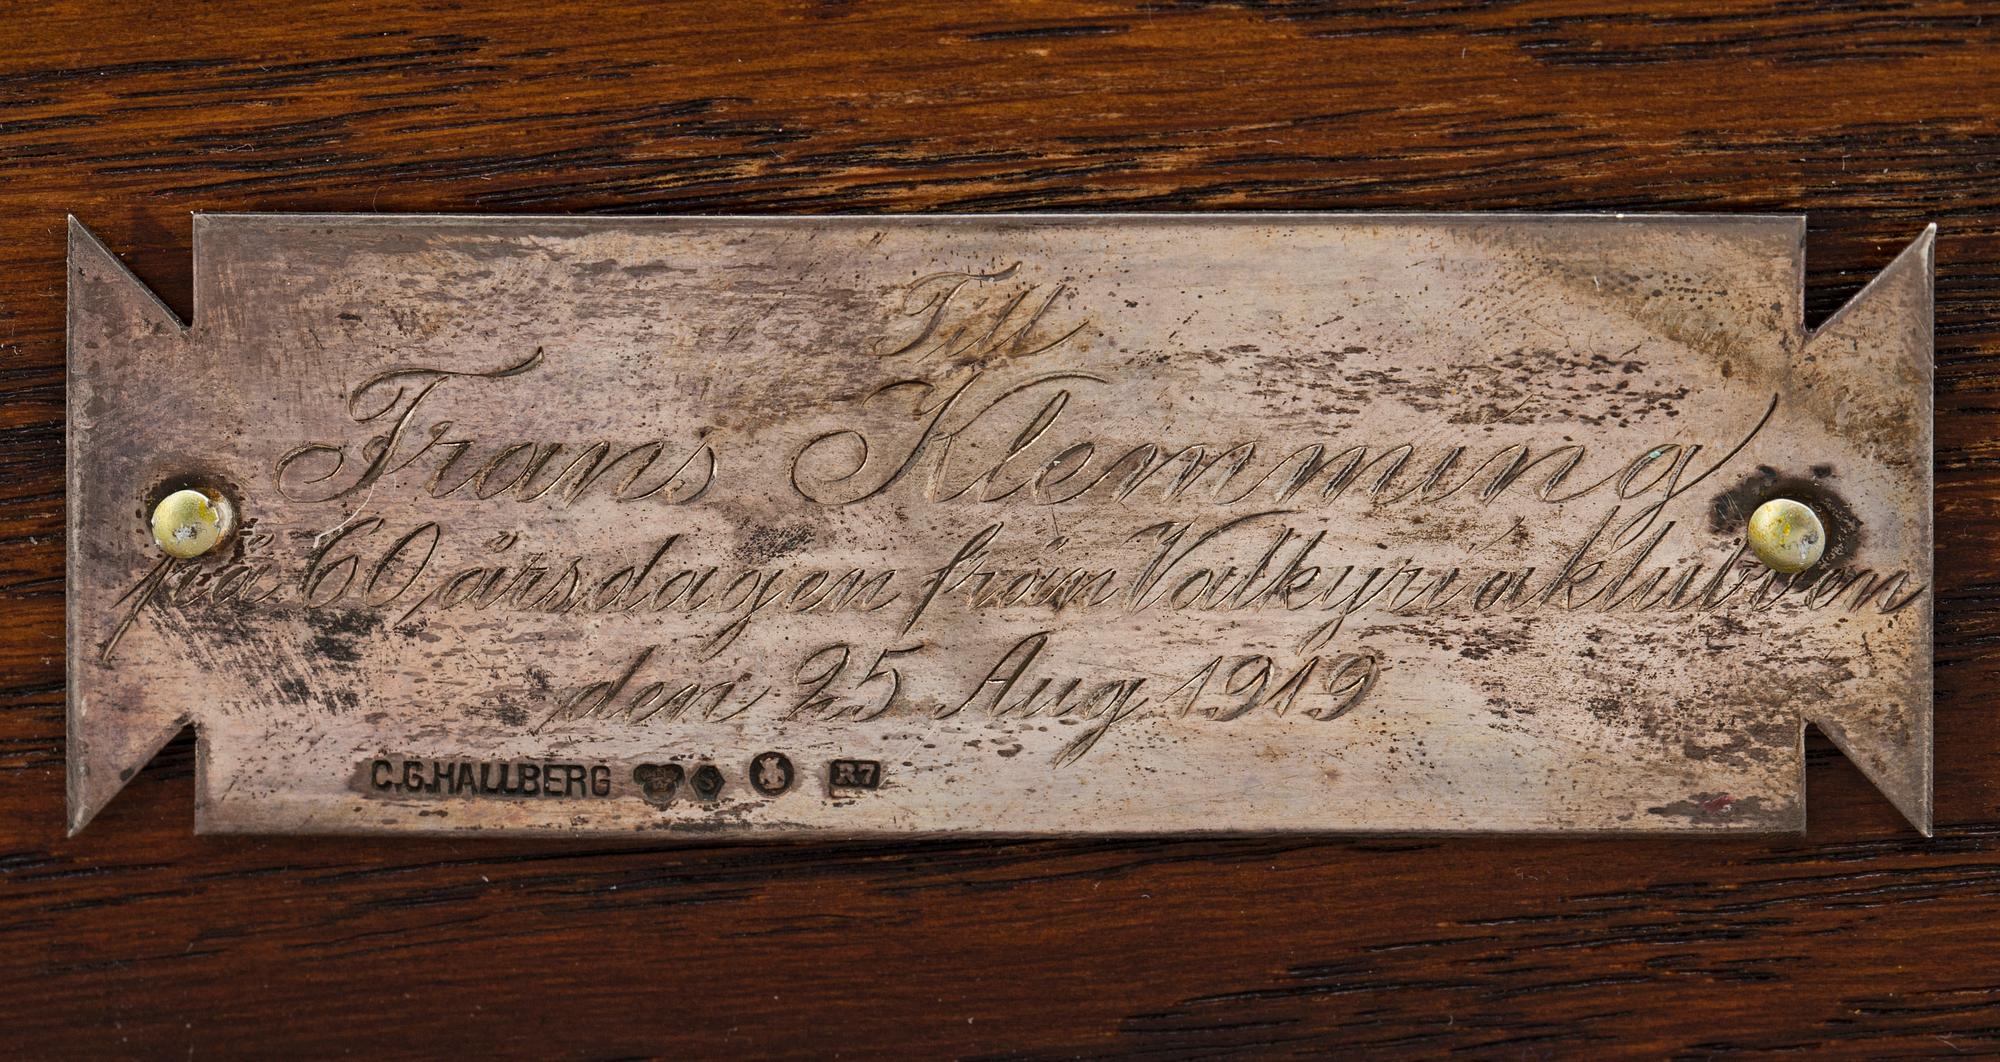 Till
Frans Klemming
på 60 årsdagen från Valkyriaklubben
den 25 Aug 1919
C.G.HALLBERG S R7